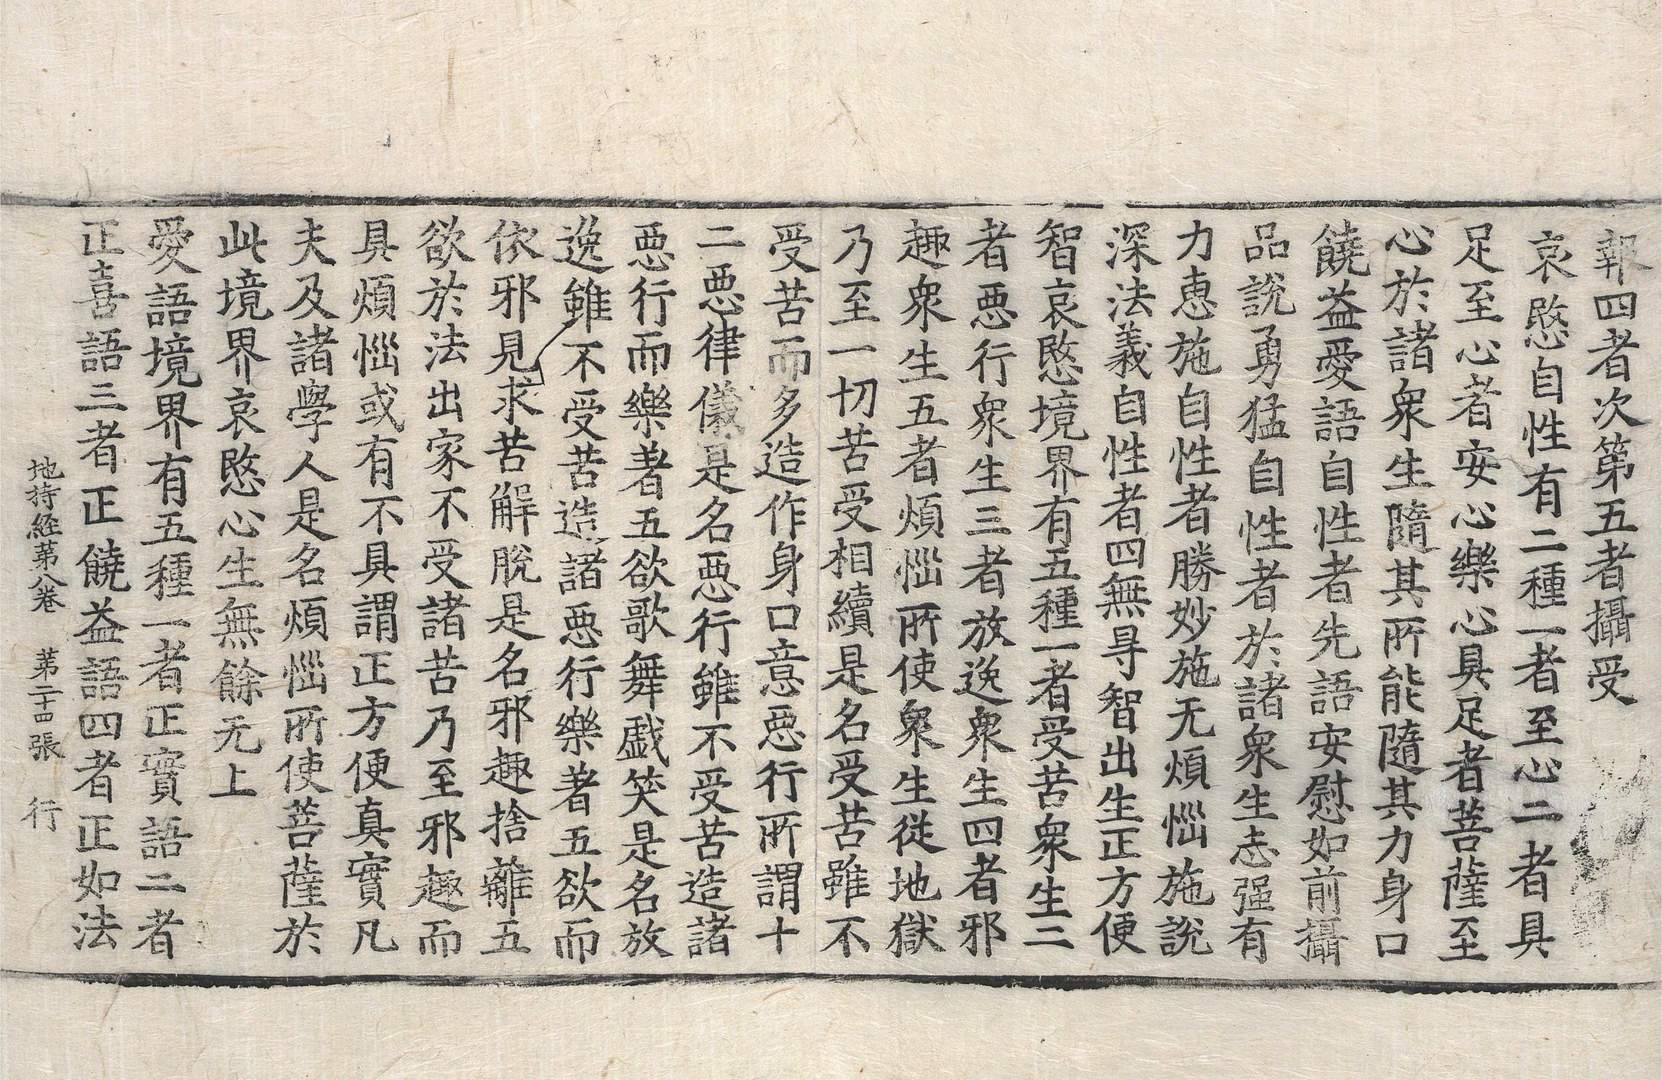 報四者次第五者攝受
哀愍自性有二種一者至心二者具
足至心者安心樂心具足者菩薩至
心於諸衆生隨其所能隨其力身口
饒益愛語自性者先語安慰如前攝
品說勇猛自性者於諸衆生志强有
力惠施自性者勝妙施无煩惱施說
深法義自性者四無㝵智出生正方便
智哀愍境界有五種一者受苦衆生二
者惡行衆生三者放逸衆生四者邪
趣衆生五者煩惱所使衆生從地獄
乃至一切苦受相續是名受苦雖不
受苦而多造作身口意惡行所謂十
二惡律儀是名惡行雖不受苦造諸
惡行而樂著五欲歌舞戲笑是名放
逸雖不受苦造諸惡行樂著五欲而
依邪見求苦解脫是名邪趣捨離五
欲於法出家不受諸苦乃至邪趣而
具煩惱或有不具謂正方便真實凡
夫及諸學人是名煩惱所使菩薩於
此境界哀愍心生無餘无上
愛語境界有五種一者正實語二者
正喜語三者正饒益語四者正如法
地持経苐八卷 苐二十四張 行